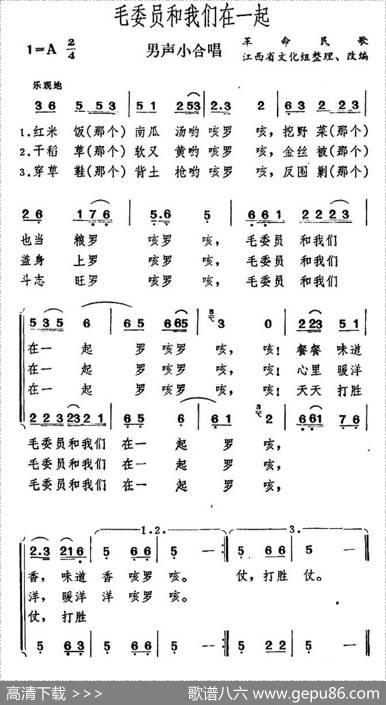 毛委员和我们在一起
1=A 2/4
男声小合唱
革命民歌
江西省文化组整理、改编
乐观地
3 6 5 5 3 5 1 2 5 3 2. 3 2 6 6 5 3
1. 红米 饭(那个) 南瓜 汤哟 咳罗 咳, 挖野 菜(那个)
2. 干稻 草(那个) 软又 黄哟 咳罗 咳, 金丝 被(那个)
3. 穿草 鞋(那个) 背土 枪哟 咳罗 咳, 反围 剿(那个)
2 6 1 7 6 5. 6 5 6 6 1 2 2 2 3
也当 粮罗 咳罗 咳, 毛委员 和我们
盖身 上罗 咳罗 咳, 毛委员 和我们
斗志 旺罗 咳罗 咳, 毛委员 和我们
5 3 5 6 6 5 6 6 5 3 0 2 2 3 5 1
在一 起 罗 咳罗 咳, 咳! 餐餐 味道
在一 起 罗 咳罗 咳, 咳! 心里 暖洋
在一 起 罗 咳罗 咳, 咳! 天天 打胜
2 2 3 2 3 2 1 6 5 6 6 1 2 6 6 1 7 6
毛委员和我们 在一 起 罗 咳,
毛委员和我们 在一 起 罗 咳,
毛委员和我们 在一 起 罗 咳,
1. 2. 3.
2. 3 2 1 6 5 6 6 5 - 5 6 6 5 -
香, 味道 香 咳罗 咳。 仗,打胜 仗。
洋, 暖洋 洋 咳罗 咳。
仗, 打胜
5. 3 5 3 2 5 6 6 5 - 5 6 6 5 -
高清下载 >>> 歌谱八六 www.gepu86.com